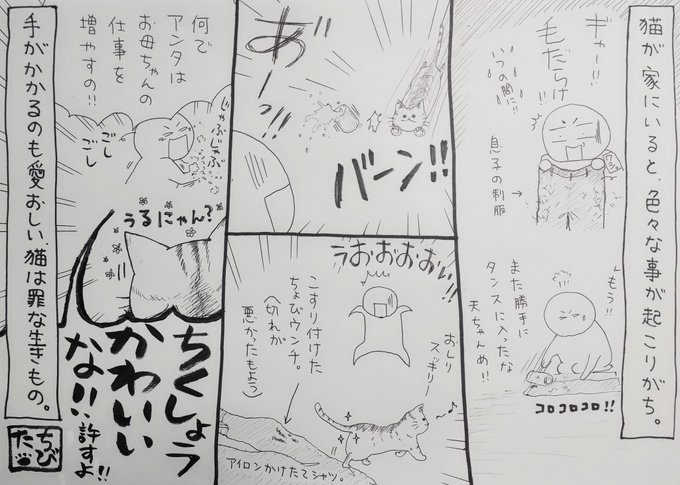 猫が家にいると、色々な事が起こりがち。
ギャー!!
毛だらけ!!
いつの間に!!
息子の制服→
もう!!
また勝手に
タンスに入ったな
天ちゃんめ!!
コロコロコロ!!
あ゛ーっ!!
バーン!!
うおおおおい!!
おしり
スギリー
こすり付けた
ちょびウンチ。
(切れが
悪かったもよう)
アイロンかけたてシャツ。
何で
アンタは
お母ちゃんの
仕事を
増やすの!!
じゃぶじゃぶ
ごし
ごし
うるにゃん?
ちくしょう
かわいい
な!!許すよ!!
手がかかるのも愛おしい、猫は罪な生きもの。
ちび
た